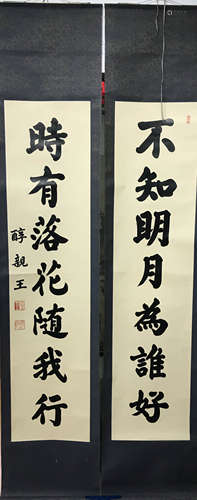 不知明月為誰好
時有落花隨我行
醇親王